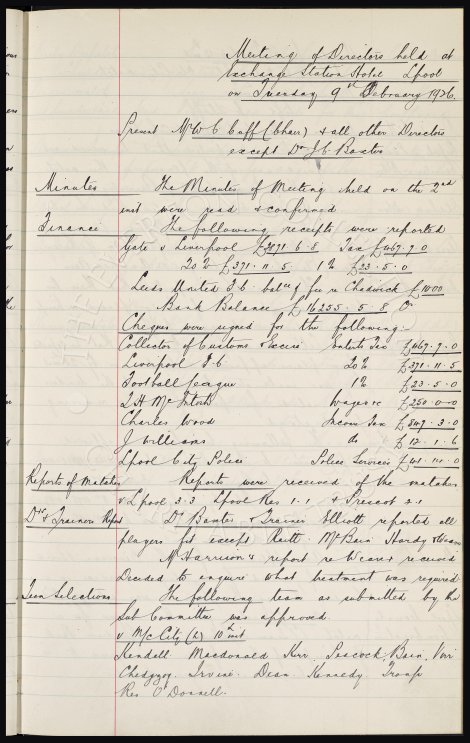 Meeting of Directors held at
Exchange Station Hotel Lpool
on Tuesday 9th February 1926.
Present Mr W C Cuff (Chair) & all other Directors
except Dr J C Baxter
Minutes The Minutes of Meeting held on the 2nd
inst were read & confirmed
Finance The following receipts were reported
Gate v Liverpool Tax £467.9.0
20% £371.11.5 1% £23.5.0
Leeds United F C bal of fee re Chadwick £1000
Bank Balance £16255.5.8 Cr
Cheques were signed for the following:-
Collector of Customs & Excise Entents Tax £467.9.0
Liverpool F C 20% £371.11.5
Football League 1% £23.5.0
T H McIntosh Wages &c £250.0.0
Charles Wood Income Tax £ 3.0
J Williams do £12.1.6
Lpool City Police Police Services
Reports of Matches Reports were received of the matches
v Lpool 3.3 Lpool Res 1.1 & Prescot
Drs & Trainers Report Dr Baxter & Trainer Elliott reported all
players fit except Raitt McBain Hardy & Weaver
Mr Harrison's report re Weaver received
Decided to enquire what treatment was required
Team Selections The following team as submitted by the
Sub Committee was approved.
v M/c City (h) 10th inst
Kendall Macdonald Kerr Peacock Bain Virr
Chedgzoy Irvine Dean Kennedy Troup
Res O'Donnell.